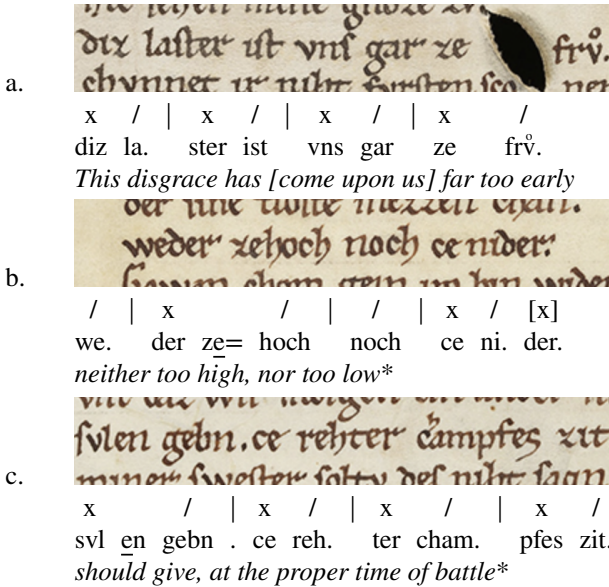 a.
diz laster ist vns gar ze frv̊.
x / | x / | x / | x /
diz la. ster ist vns gar ze frv̊.
This disgrace has [come upon us] far too early
b.
weder zehoch noch ce nider.
/ | x / | / | x / [x]
we. der ze= hoch noch ce ni. der.
neither too high, nor too low*
c.
svlen gebn. ce rehter cͪampfes zit
x / | x / | x / | x /
svl en gebn . ce reh. ter cham. pfes zit.
should give, at the proper time of battle*